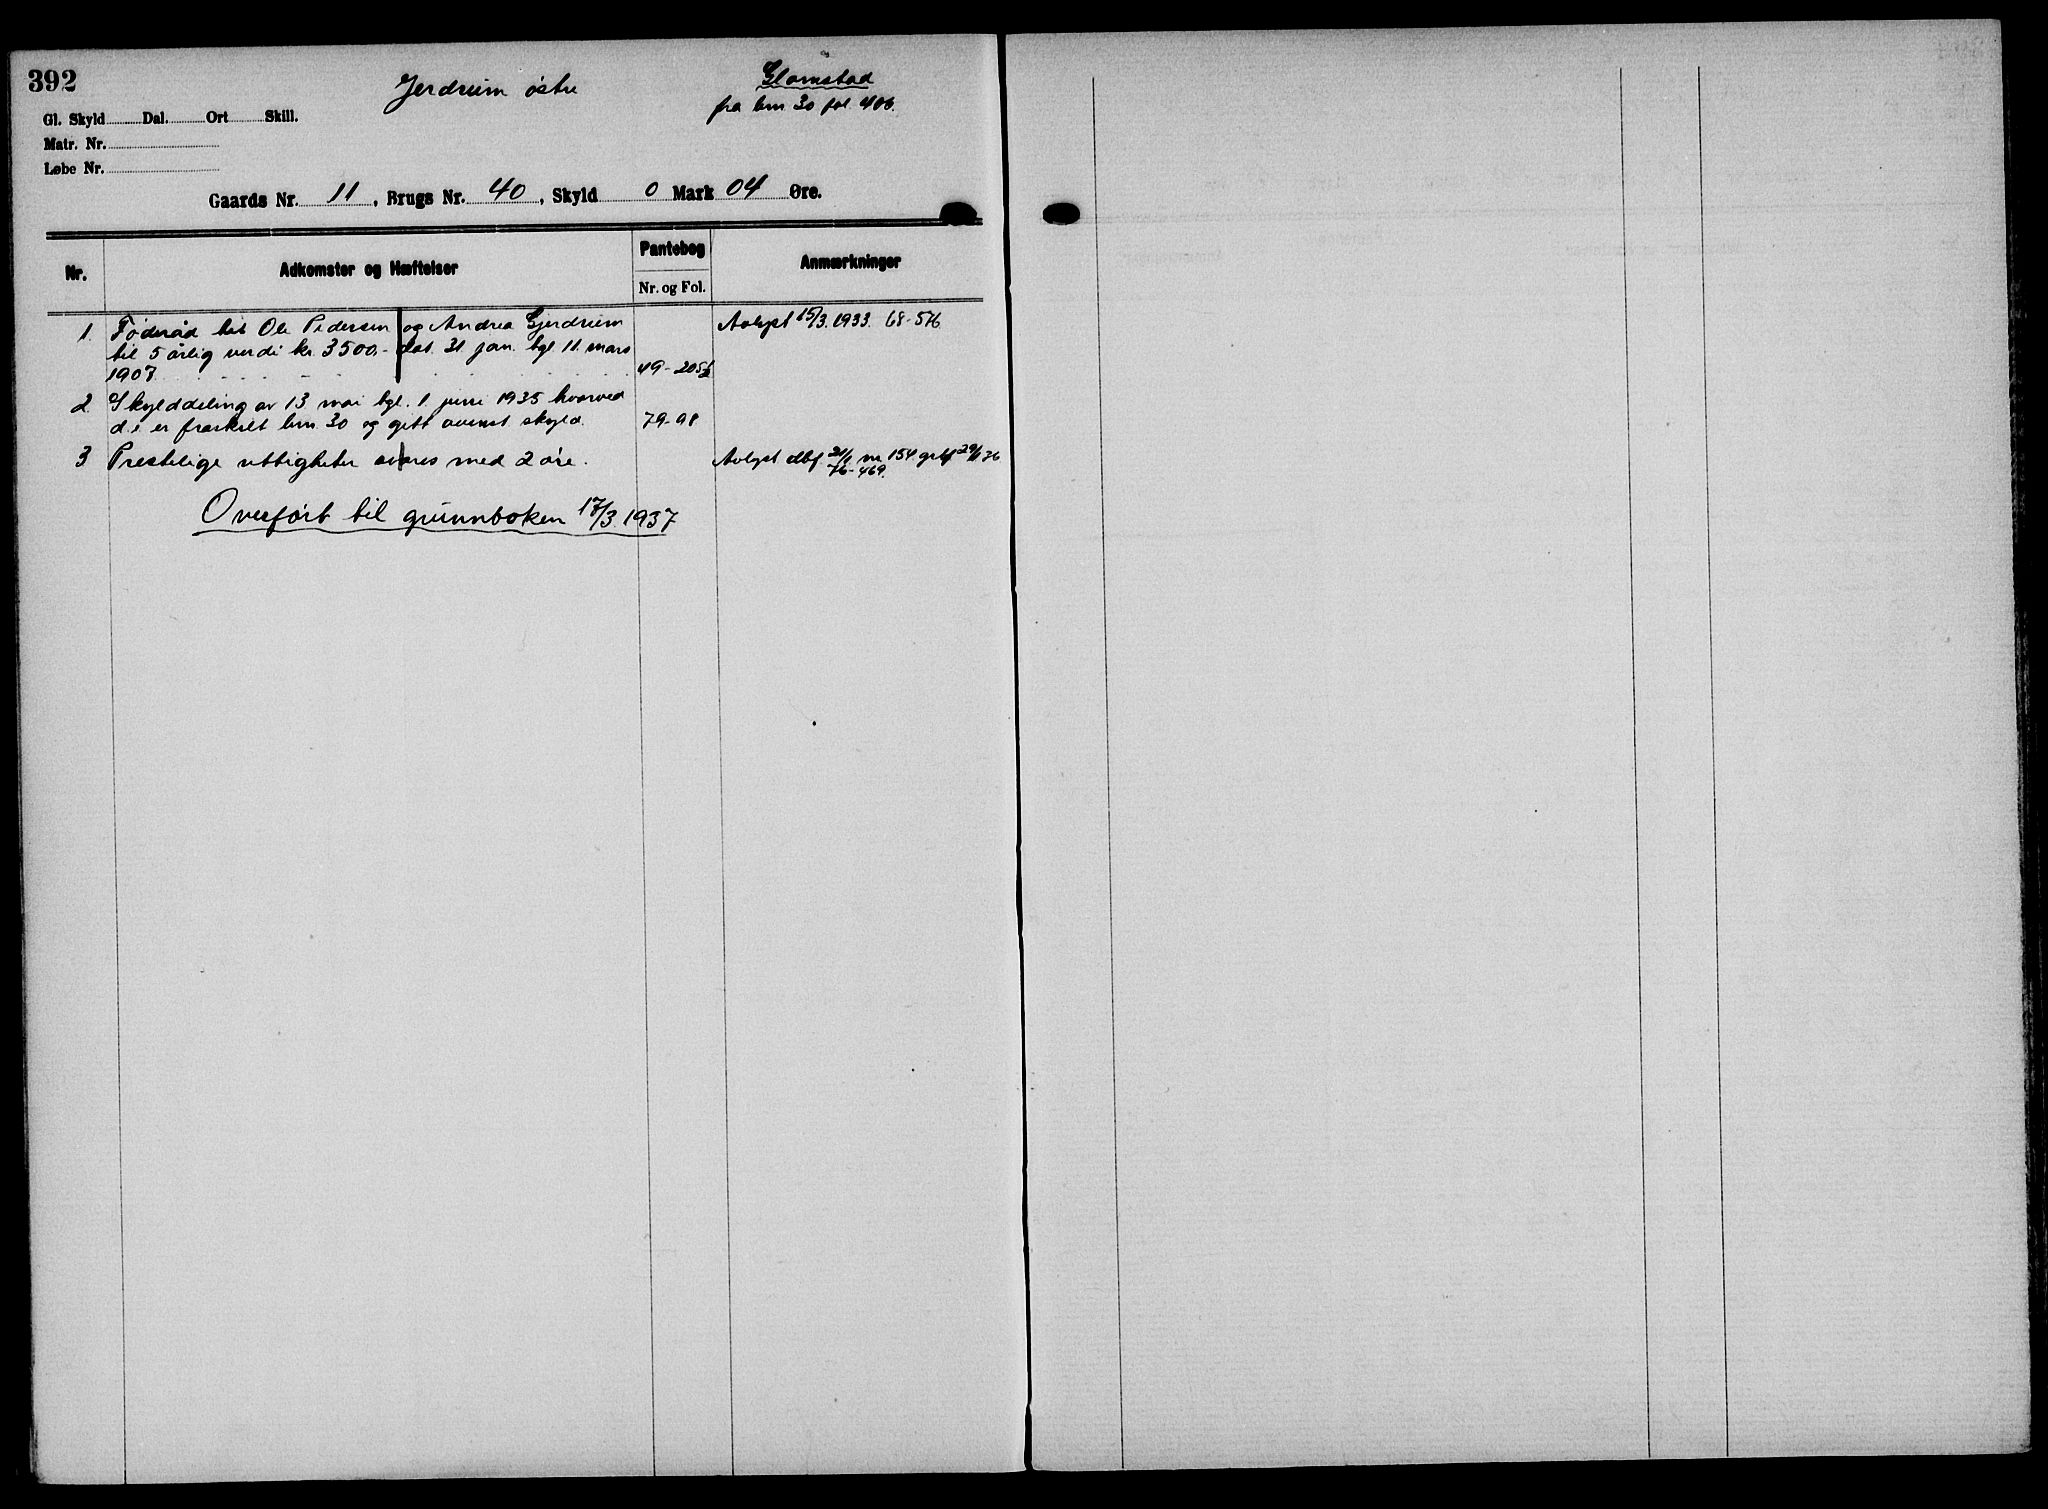 392
Jerdrum østre
Glomstad
fra brn. 30 fol. 406.
Gl. Skyld Dal. Ort Skill.
Matr. Nr.
Løbe Nr.
Gaards Nr. 11, Brugs Nr. 40, Skyld 0 Mark 04 Øre.
Nr. Adkomster og Hæftelser Pantebog Anmærkninger
Nr. og Fol.
1. Føderåd til Ole Pedersen og Andrea Gjerdrum Avlyst 15/3.1933. 68-576
til 5 årlig verdi kr. 3500,- dat. 31 jan. tgl. 11. mars
1907 49-205b
2 Skylddeling av 13 mai tgl. 1. juni 1935 hvorved
d.e. er fraskilt brn. 30 og gitt ovennt skyld. 79-98
3 Prestelige rettigheter avløses med 2 øre. Avlyst dbf. 21/1 nr. 154
76-469.
Overført til grunnboken 17/3.1937